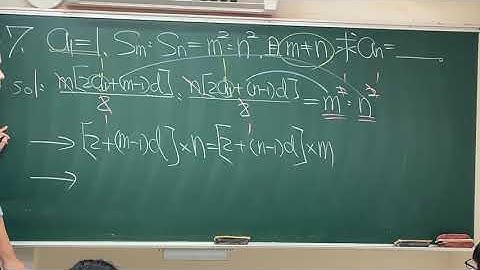 7. a₁=1, Sₘ:Sₙ=m²:n², 且m≠n, 求aₙ=____.
sol: m[2a₁+(m-1)d]/2 : n[2a₁+(n-1)d]/2 = m²:n²
→ [2+(m-1)d]×n=[2+(n-1)d]×m
→